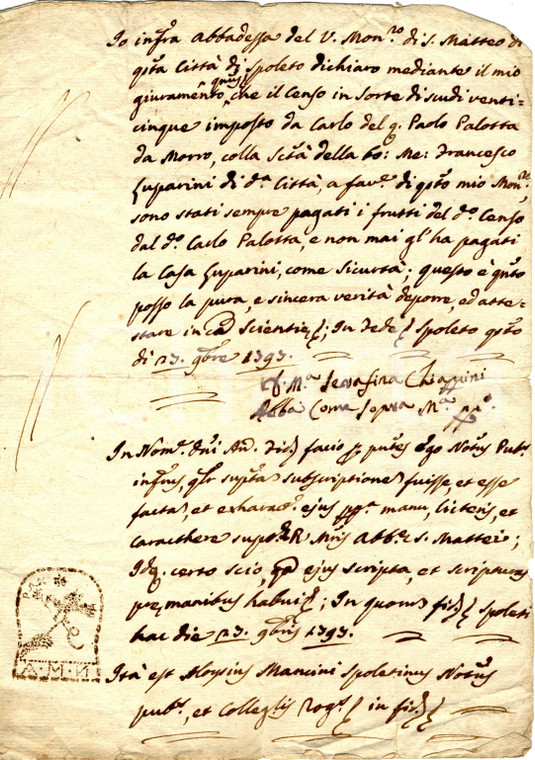 Io infra Abbadessa del V. Mon.ro di S. Matteo di
q̃ta Città di Spoleto dichiaro mediante il mio
giuramento, che il Censo in Sorte di scudi venti-
cinque imposto da Carlo del q. Paolo Palotta
da Morro, colla Sctà della bo: Me: Francesco
Luparini di d.a Città, a fav.e di q̃to mio Mon.ro,
sono stati sempre pagati i frutti del d.o Censo
dal d.o Carlo Palotta, e non mai gl'ha pagati
la Casa Luparini, come Sicurtà; questo è q̃nto
posso la pura, e sincera verità deporre, ed atte-
stare in Scientie; In Fede Spoleto q̃to
di 23. 9bre 1793.
M.a Serafina Chiappini
Abba Come Sopra M.a pp.a
In Nom.e Dni Am. Fid. facio p̃ p̃ntes Ego Not.us Pub.s
infr̃us, q̃lr sup̃ta subscriptione fuisse, et esse
facta, et exharact. ejus pp.a manu, licteris, et
caracthere sup.tæ R. Mr̃is Abb.æ S. Matthei;
Id q. certo scio, ejus scripta, et scripturas
p̃ manibus habui; In quorum fid. Spoleti
hac die 23. 9bris 1793.
A·M·N
Ità est Aloysius Mancini Spoletinus Not.us
pub.s, et Collegiis Rog.s in fid.